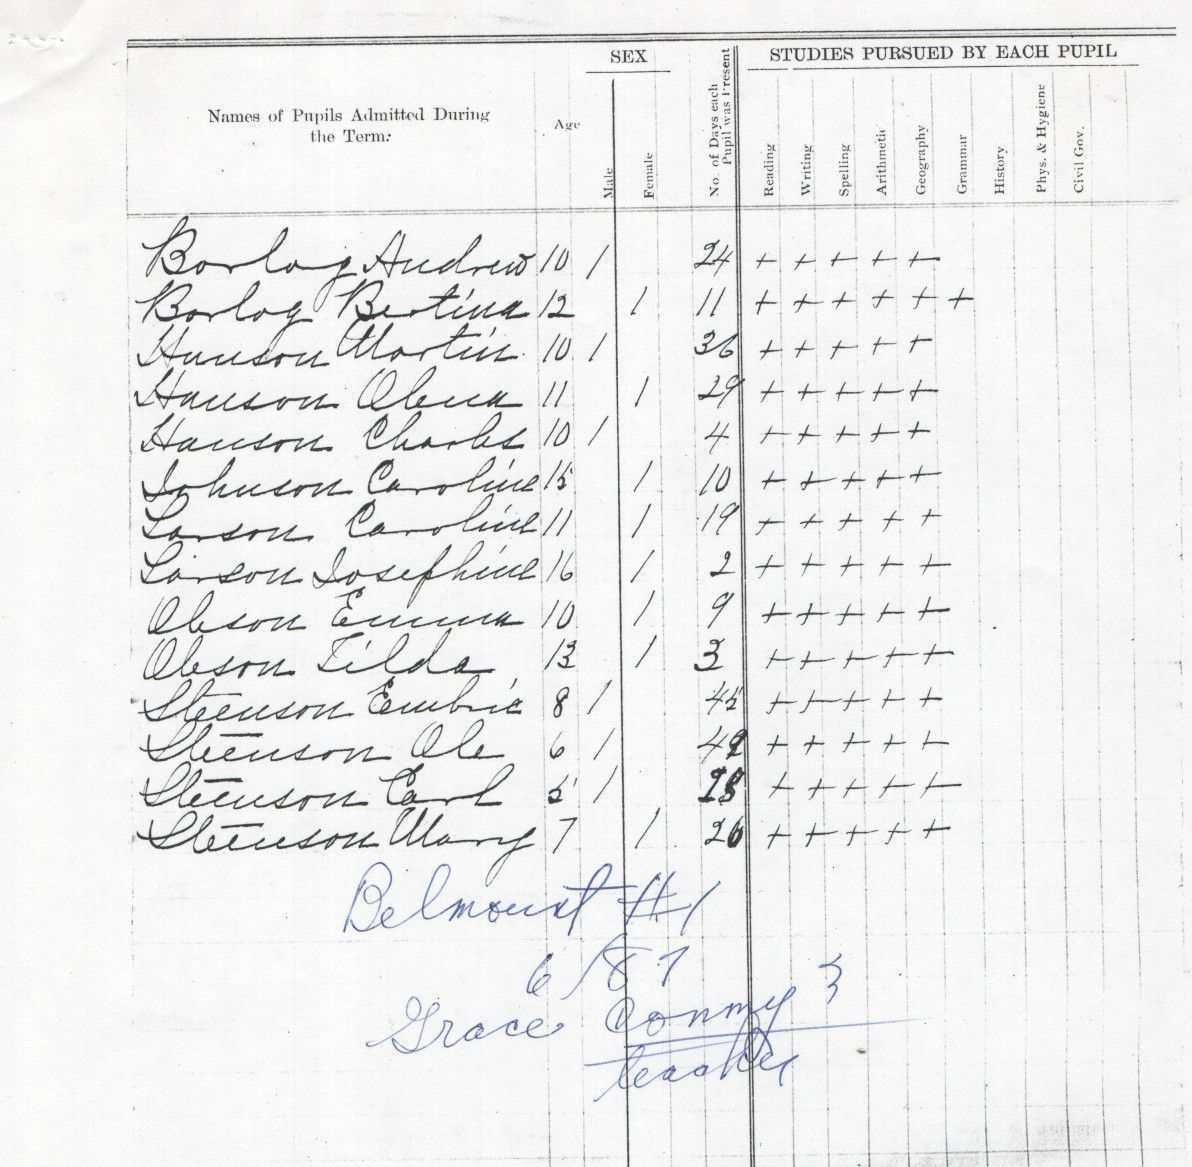 SEX
STUDIES PURSUED BY EACH PUPIL
Names of Pupils Admitted During
the Term:
Age
Male
Female
No. of Days each
Pupil was Present
Reading
Writing
Spelling
Arithmetic
Geography
Grammar
History
Phys. & Hygiene
Civil Gov.
Borlog Andrew 10 / 24 + + + + +
Borlog Bertina 12 1 11 + + + + + +
Hanson Martin 10 1 36 + + + + +
Hanson Olena 11 1 29 + + + + +
Hanson Charles 10 1 4 + + + + +
Johnson Caroline 15 1 10 + + + + +
Larson Caroline 11 1 19 + + + + +
Larson Josephine 16 1 2 + + + + +
Oleson Emma 10 1 9 + + + + +
Oleson Tilda 13 1 3 + + + + +
Steenson Embric 8 1 45 + + + + +
Steenson Ole 6 1 49 + + + + +
Steenson Carl 5 1 28 + + + + +
Steenson Mary 7 1 26 + + + + +
Belmount #1
6/87
Grace Conmy
teacher